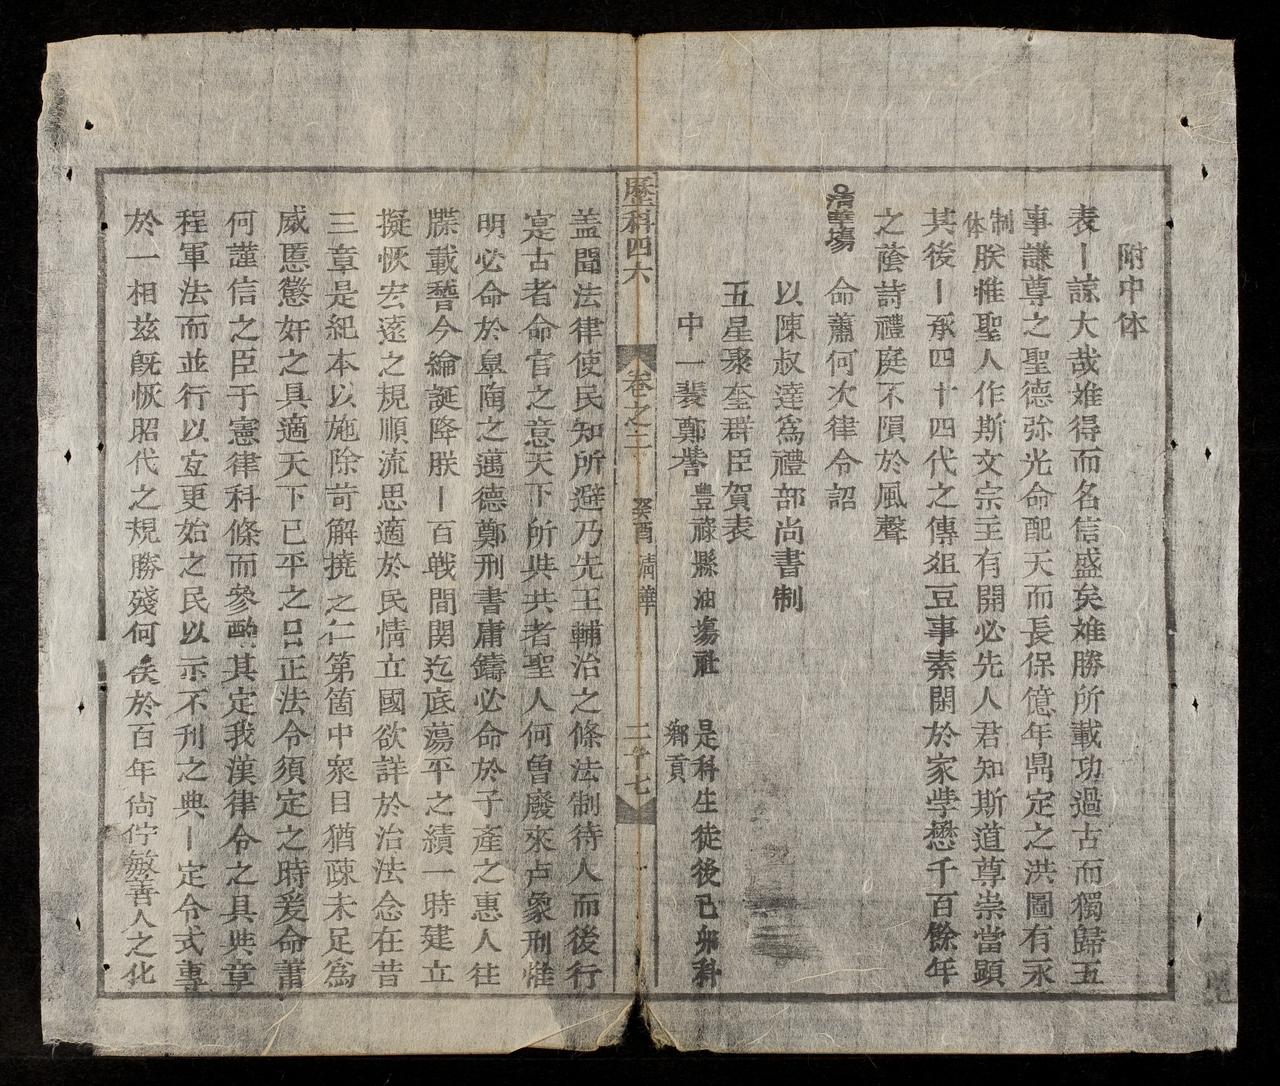 附中体
表丨諒大哉难得而名信盛矣难勝所載功過古而獨歸五
事謙尊之聖德弥光命配天而長保億年鼎定之洪圖有永
制体朕惟聖人作斯文宗主有開必先人君知斯道尊崇當顕
其後丨承四十四代之傳俎豆事素閑於家学懋千百餘年
之蔭詩禮庭不隕於風聲
清華塲 命蕭何次律令詔
以陳叔達為禮部尚書制
五星聚奎群臣賀表
中一裴鄭譽 豊禄縣油塲社 是科生徒後己卯科
鄉貢
歷科四六 卷之二 癸酉 清華 二十七
盖聞法律使民知所避乃先王輔治之條法制待人而後行
寔古者命官之意天下所與共者聖人何曾廢來占象刑惟
明必命於皐陶之邁德鄭刑書庸鑄必命於子產之惠人往
牒載瞀今綸誕降朕丨百戦間関迄底蕩平之績一時建立
擬恢宏遠之規順流思適於民情立國欲詳於治法念在昔
三章是紀本以施除苛解撓之仁第箇中衆目猶疎未足為
威慝懲奸之具適天下已平之日正法令須定之時爰命蕭
何謹信之臣于憲律科條而參酌其定我漢律令之具與章
程軍法而並行以宜更始之民以示不刊之典丨定令式專
於一相兹既恢昭代之規勝殘何俟於百年尚佇敏善人之化